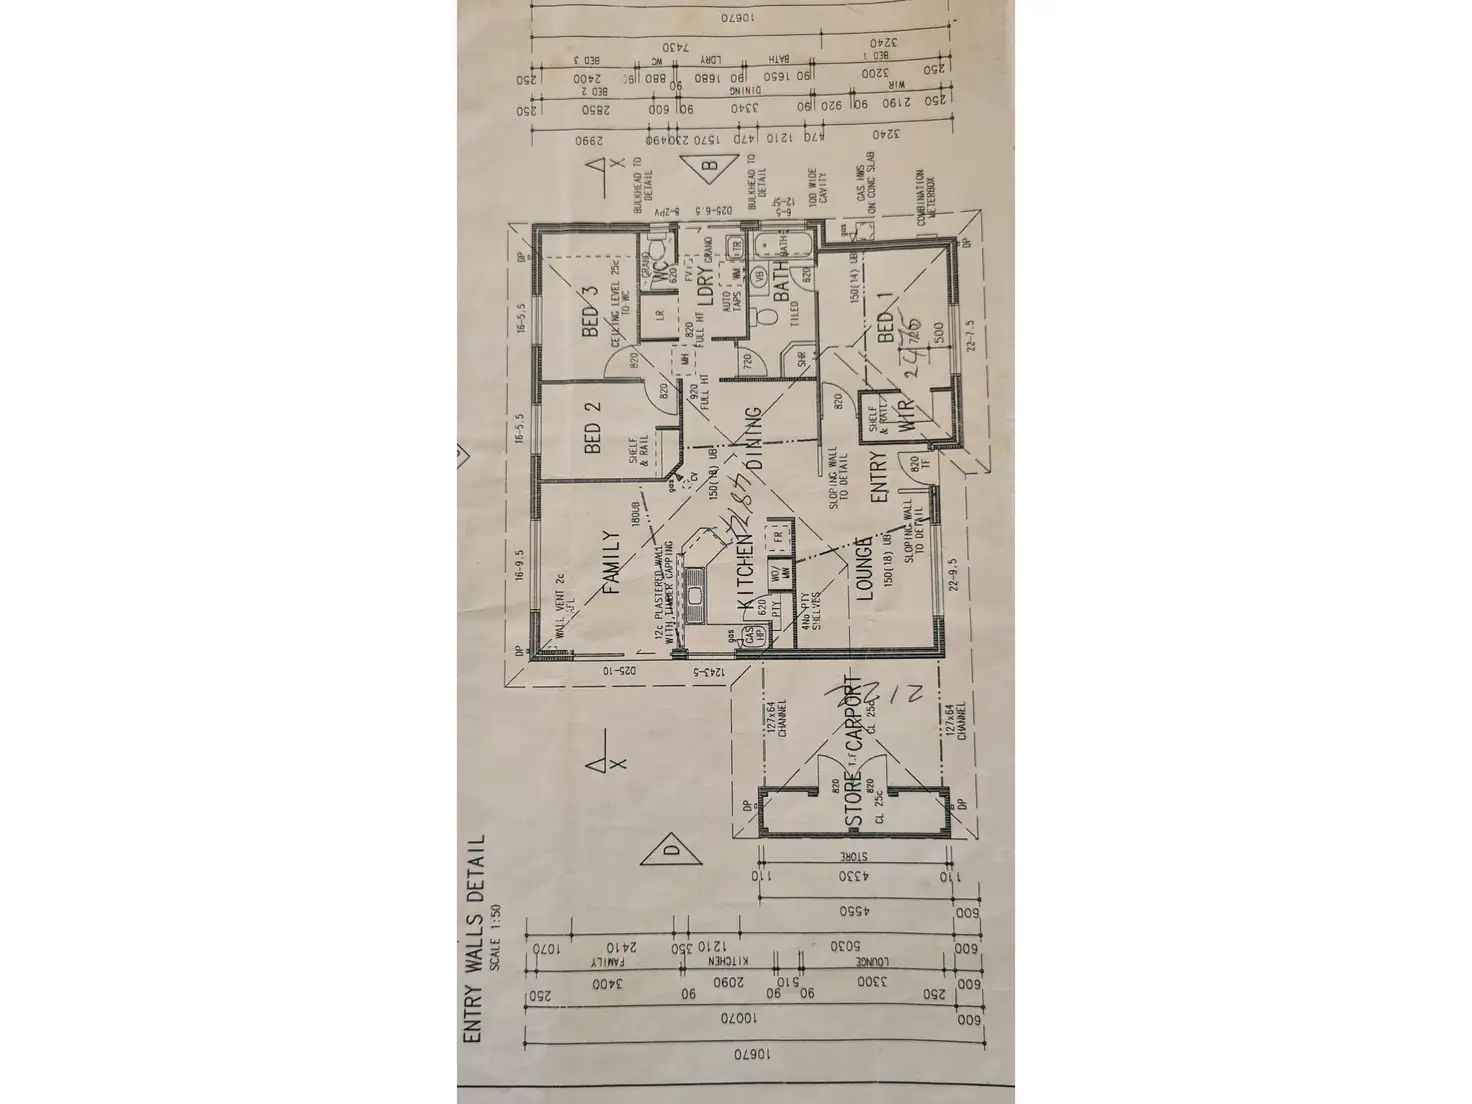 10670
7430
3240
BED 3
WC
LDRY
BATH
BED 1
250
2400
90
880
90
1680
90
1650
90
3200
250
BED 2
DINING
WIR
250
2850
600
90
3340
90
920
90
2190
250
2990
490
230
1570
470
1210
470
3240
X
BULKHEAD TO
DETAIL
B
BULKHEAD TO
DETAIL
100 WIDE
CAVITY
GAS HWS
ON CONC SLAB
COMBINATION
METERBOX
8-2PV
D25-6.5
gas
DP
DP
BED 3
CEILING LEVEL 25c
TO WC
GRANO
WC
620
LR
FV
LDRY
GRANO
TR
WM
AUTO
TAPS
820
FULL HT
BATH
BATH
VB
620
TILED
SHR
150(14) UB
BED 1
2475
720
500
16-5.5
22-7.5
820
MH
920
FULL HT
720
820
820
BED 2
SHELF
& RAIL
16-5.5
DINING
SHELF
& RAIL
WIR
gas
CV
150(18) UB
SLOPING WALL
TO DETAIL
ENTRY
820
TF
180UB
16-9.5
FAMILY
WALL VENT 2c
AFL
12c PLASTERED WALL
WITH TIMBER CAPPING
KITCHEN
FR
WO/
MW
620
PTY
4No PTY
SHELVES
gas
GAS
HP
LOUNGE
150(18) UB
SLOPING WALL
TO DETAIL
22-9.5
DP
D25-10
1243-5
127x64
CHANNEL
CARPORT
CL 25c
127x64
CHANNEL
X
T.F
820
820
STORE
CL 25c
DP
DP
D
STORE
110
4330
110
4550
600
1070
2410
350
1210
5030
600
FAMILY
KITCHEN
LOUNGE
250
3400
90
2090
90
510
90
3300
250
600
10070
600
10670
ENTRY WALLS DETAIL
SCALE 1:50